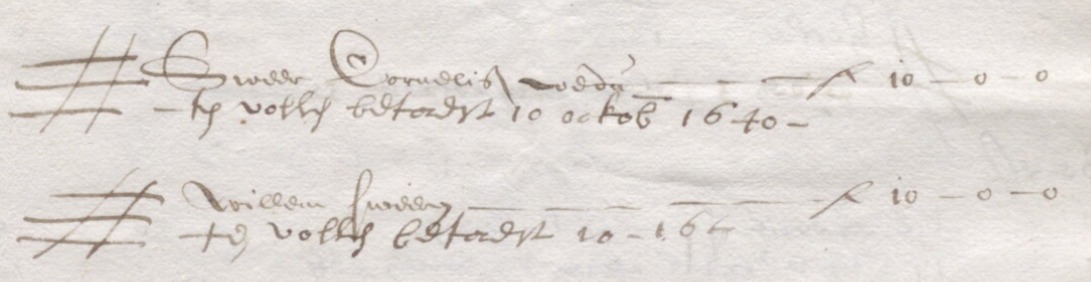 Sweer Cornelis wedu f 10 - 0 - 0
ten vollen betaelt 10 ocktob 1640 -
Willem Sweers f 10 - 0 - 0
ten vollen betaelt 10 - 16